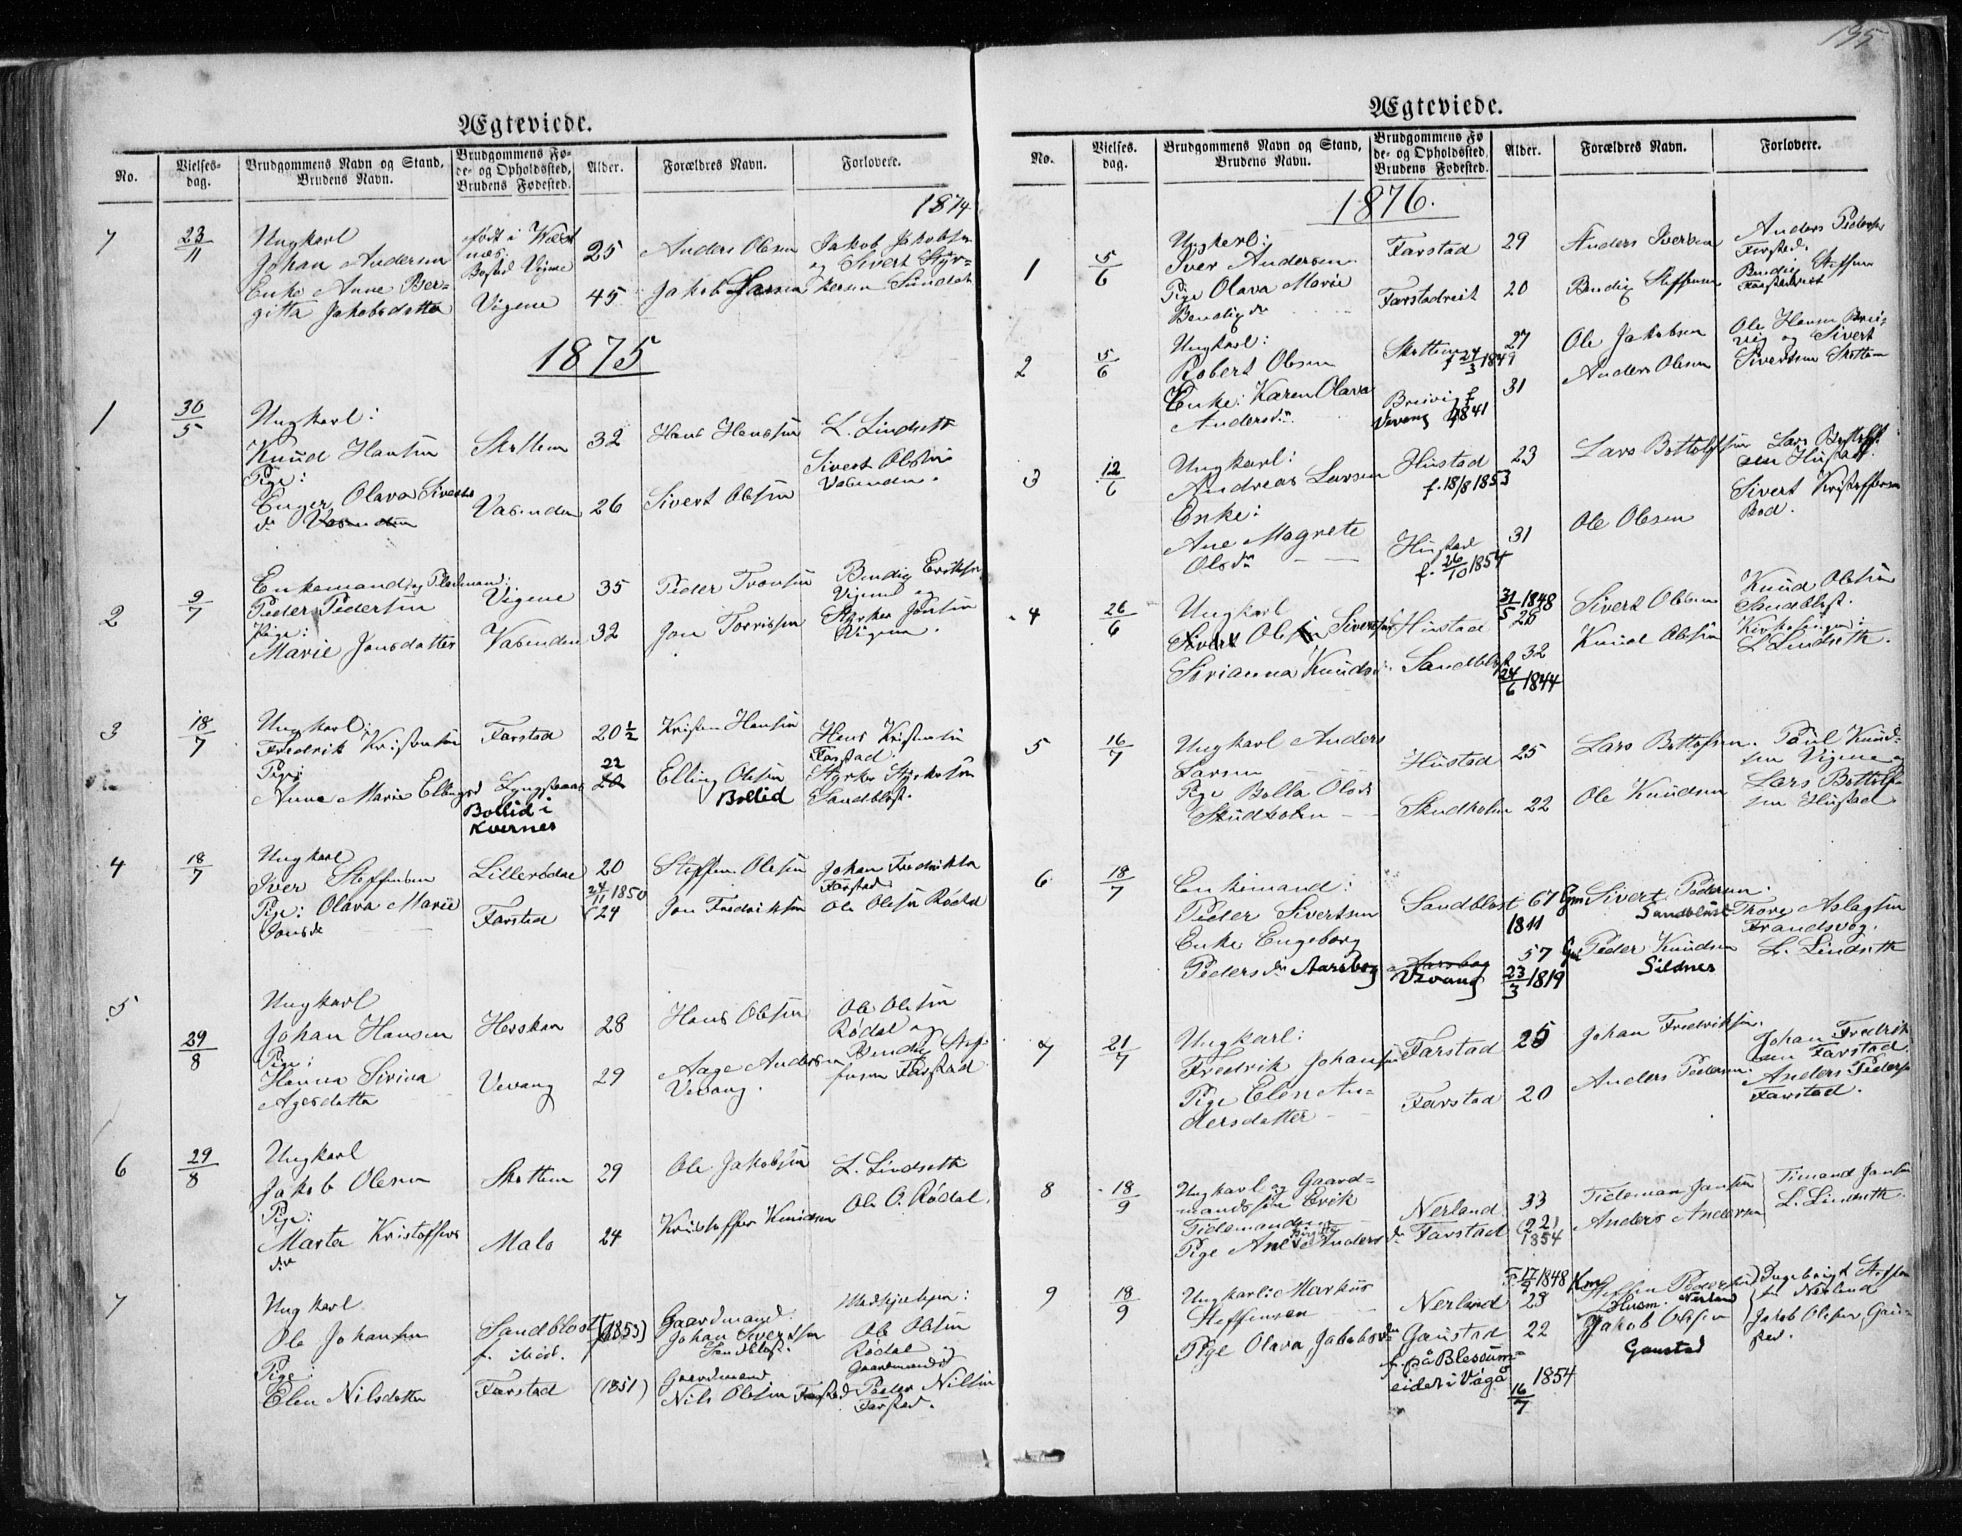 195
Ægteviede.
No.
Vielses-
dag.
Brudgommens Navn og Stand,
Brudens Navn.
Brudgommens Fø-
de- og Opholdssted,
Brudens Fødested.
Alder.
Forældres Navn.
Forlovere.
1874
7
23/11
Ungkarl
Johan Andersen
Enke Anne Ber-
gitta Jakobsdatter
født i
Bosted Vigene
Vigene
25
45
Anders Olesen
Jakob
Jakob Jakobsen
og Sivert Styr-
1875
1
30/5
Ungkarl:
Knud Hansen
Pige:
Olava Siverts
Skottem
Vasenden
32
26
Hans Hanssen
Sivert Olsen
L. Lindseth
Sivert Olsen
Vasenden.
2
9/7
Enkemand og
Peder Pedersen
Pige:
Marie Jonsdatter
Vigene
Vasenden
35
32
Peder Tronsen
Jon Torrissen
Bendig Eriksen
Vigene og
Vigene.
3
18/7
Ungkarl:
Fredrik Kristensen
Pige:
Anne Marie
Farstad
Bollid i
Kvernes
20½
22
20
Kristen Hansen
Elling Olsen
Bollid
Hans Kristensen
Farstad.
Sandblost.
4
18/7
Ungkarl
Iver Steffensen
Pige: Olava Marie
Jonsdr
Farstad
20
24/11 1850
24
Steffen Olesen
Jon Fredriksen
Johan Fredriksen
Farstad
Ole Olsen Rødal
5
29/8
Ungkarl
Johan Hansen
Pige:
Hanna Sirina
Agesdatter
Herskan
Vevang
28
29
Hans Olsen
Aage Andersen
Vevang.
Ole Olsen
Rødal og
Bendig Stef-
fensen Farstad
6
29/8
Ungkarl
Jakob Olesen
Pige:
Marta Kristoffers
dr
Skottem
Malo
29
24
Ole Jakobsen
Kristoffer Knudsen
L. Lindseth
Ole O. Rødal.
7
Ungkarl
Ole Johansen
Pige:
Elen Nilsdatter
Sandblost
Farstad
(1853)
(1851)
Gaardmand
Johan Sivertsen
Sandblost.
Gaardmand
Nils Olsen Farstad
Ole Olsen
Rødal
Gaardmand
Peder Nilsen
Farstad.
Ægteviede.
No.
Vielses-
dag.
Brudgommens Navn og Stand,
Brudens Navn.
Brudgommens Fø
de- og Opholdssted,
Brudens Fødested.
Alder.
Forældres Navn.
Forlovere.
1876.
1
5/6
Ungkarl:
Iver Andersen
Pige Olava Marie
Bendigdr
Farstad
Farstadreit
29
20
Anders Iversen
Bendig Steffensen
Anders Pedersen
Farstad.
Bendig Steffensen
Farstadreit
2
5/6
Ungkarl:
Robert Olsen
Enke: Karen Olava
Andersdr
Skottem
f 24/3 1849
Breivig f.
Vevang 1841
27
31
Ole Jakobsen
Anders Olesen
Ole Hansen Brei-
vig og Sivert
Sivertsen Skottem
3
12/6
Ungkarl:
Andreas Larsen
Enke:
Ane Magrete
Olsdr
Hustad
f. 18/8 1853
Hustad
f. 26/10 1854
23
31
Lars Bottolfsen
Ole Olesen
Sivert Kristoffersen
Bod.
4
26/6
Ungkarl
Sivertsen
Knudsdr
Hustad
Sandblost
31/5 1848
28
32
24/6 1844
Sivert Olsen
Knud Olesen
Knud Olesen
Sandblost.
Kirkesanger:
L. Lindseth.
5
16/7
Ungkarl Anders
Larsen
Pige Bolla Olsdr
Skudholm
Hustad
Skudholm
25
22
Lars Bottolfsen.
Ole Knudsen
Poul Knud-
sen Vigene og
Lars Bottolf-
sen Hustad
6
18/7
Enkemand:
Peder Sivertsen
Enke Engeborg
Pedersdr Aarsbog
Sandblost
Aarsbog
Vevang
67
1811
57
23/3 1819
Gm Sivert Pedersen.
Sandblost
Peder Knudsen
Sildnes
Thore Aslagsen
Frandsvog.
L. Lindseth
7
21/7
Ungkarl:
Fredrik Johansen
Pige Elen An-
dersdatter
Farstad
Farstad
25
20
Johan Fredriksen.
Anders Pedersen.
Johan Fredrik
sen Farstad.
Anders Peders
Farstad.
8
18/9
Ungkarl og Gaard-
mandssøn Erik
Tidemandsen
Pige Ane Andersdr
Nerland
Farstad
33
(22)
1854
Tideman Jansen
Anders Andersen
Timand Jansen
L. Lindseth.
9
18/9
Ungkarl: Markus
Steffensen
Pige Olava Jakobsdr
Nerland
Gaustad
f. på Blesdum-
eidet i Vågå
F. 17/9 1848
28
22
16/7 1854
Steffen Pedersen
Husm. Nerland
Jakob Olsen
Gaustad
Ingebrigt Steffen
sen Nerland
Jakob Olsen Gau-
stad.